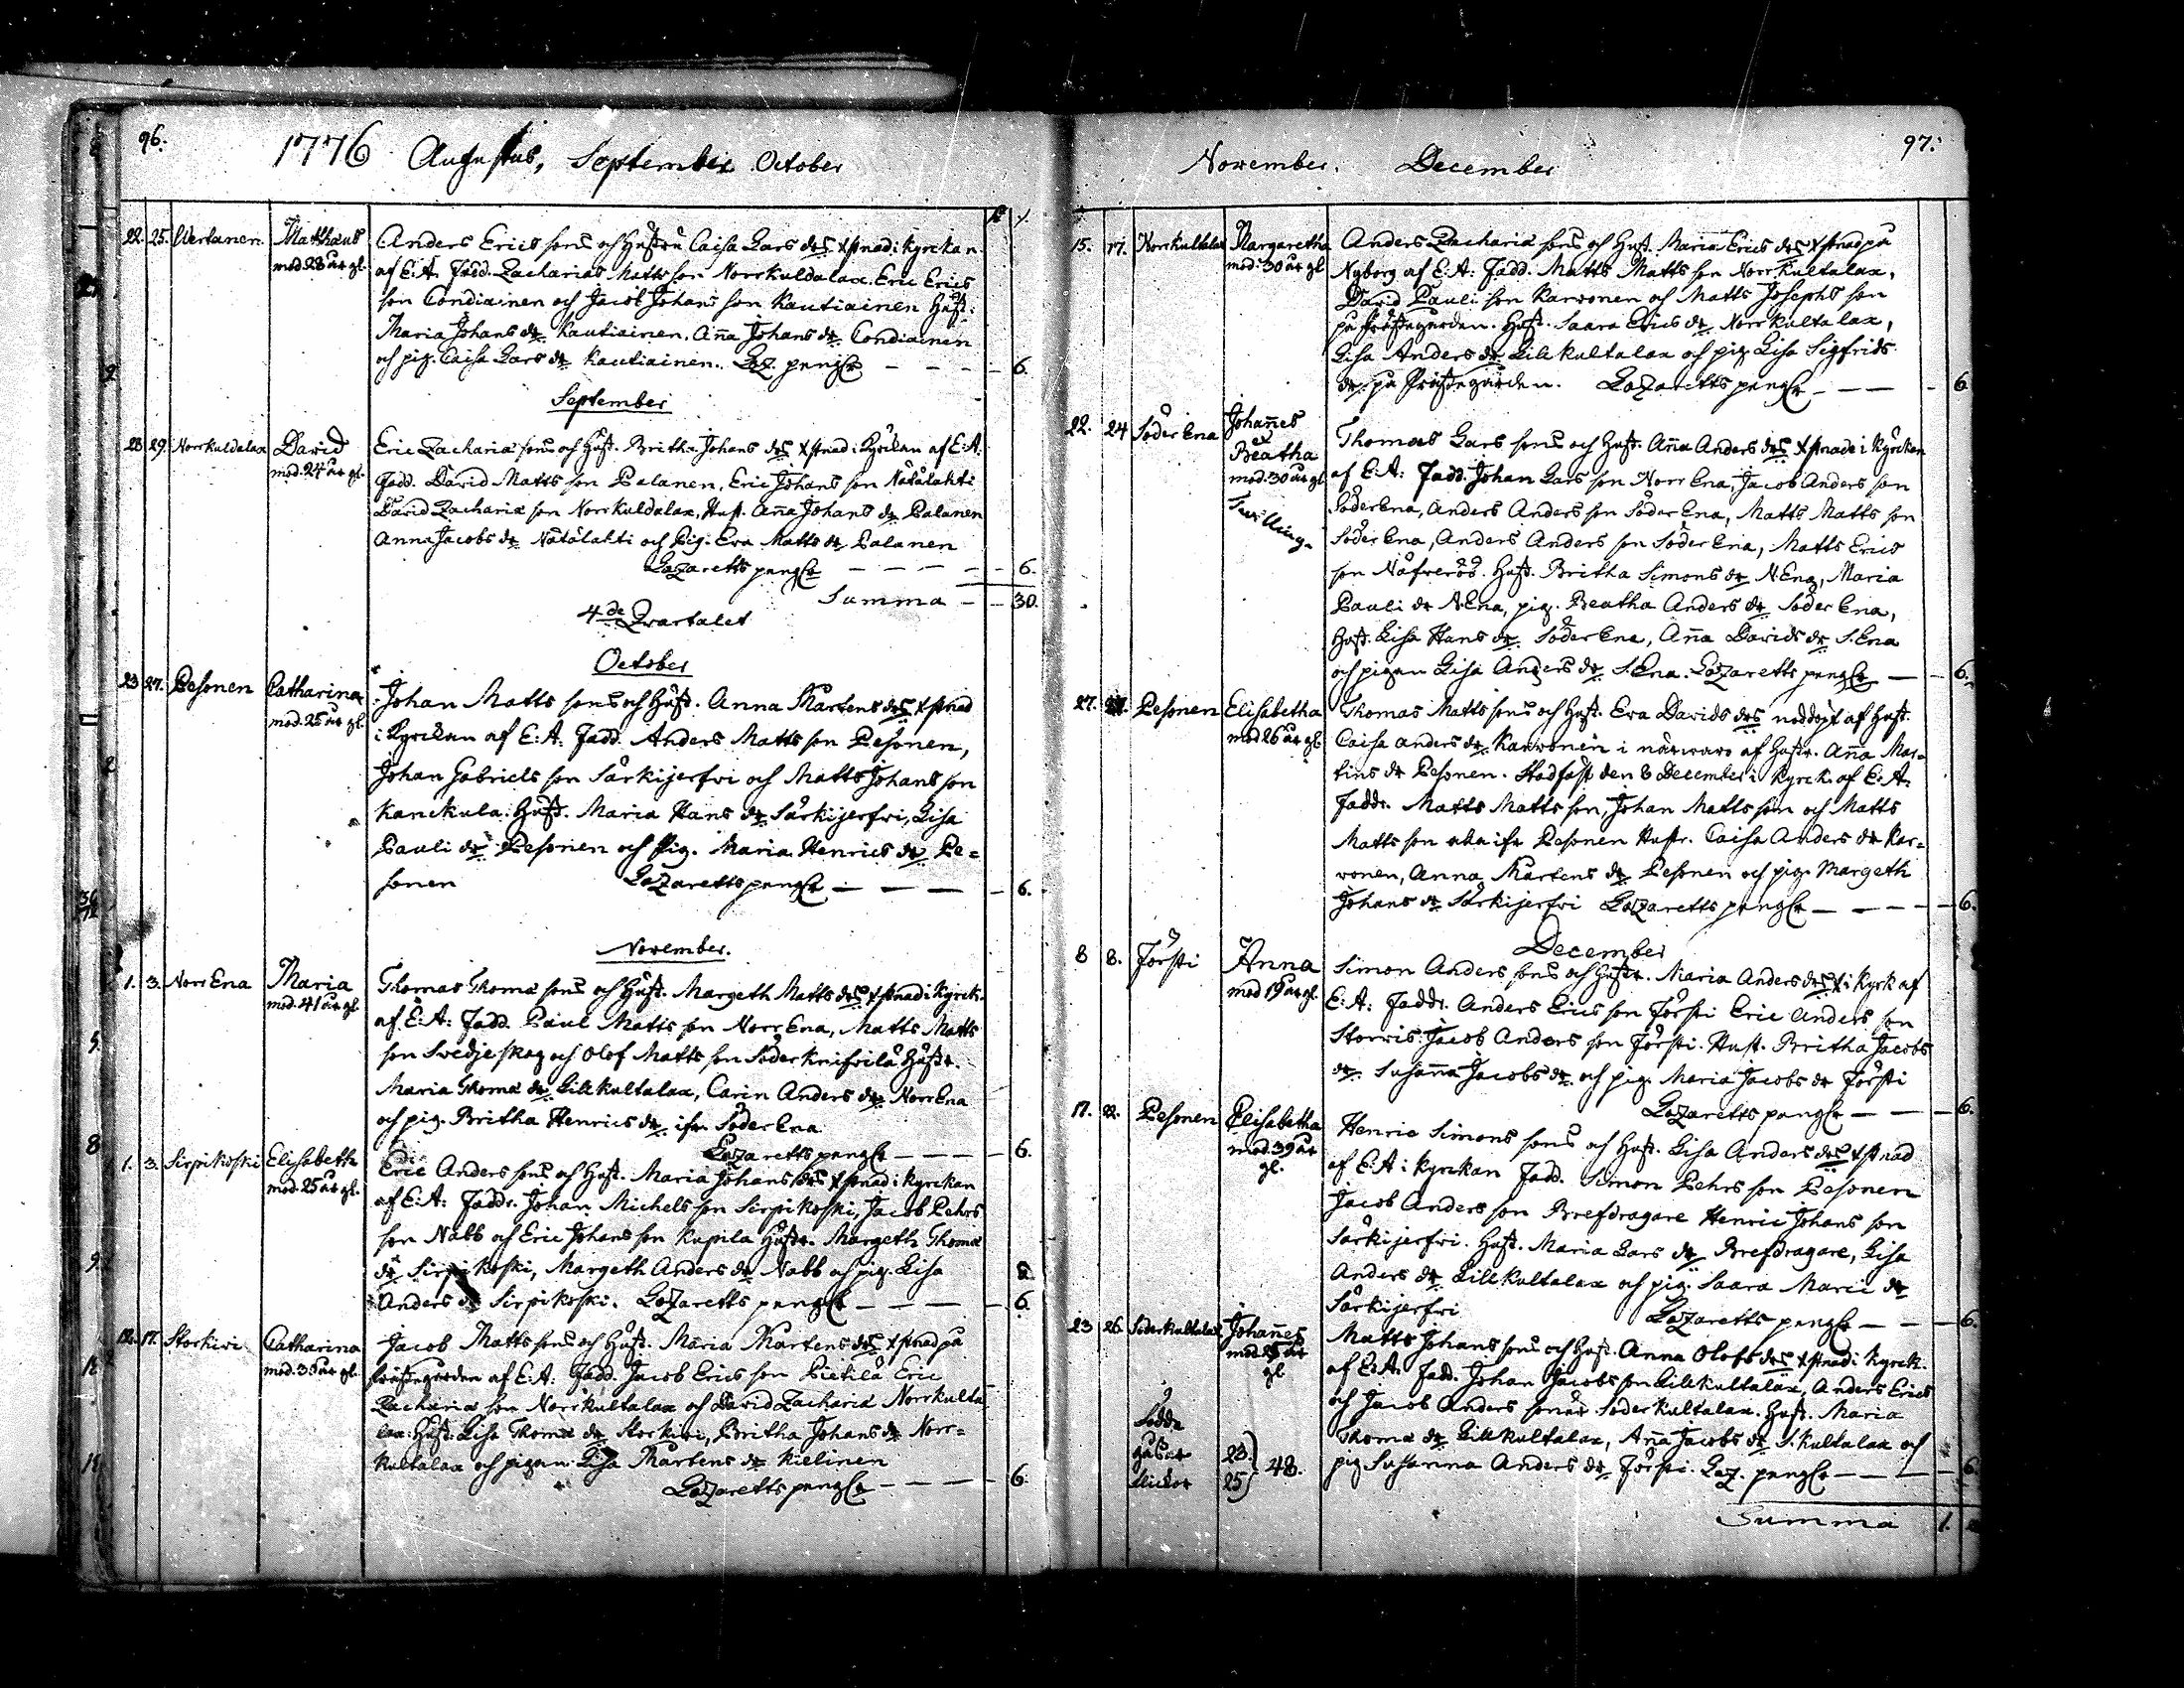 96.
1776 Augustus, September October
22. 25. Wertanen. Matthæus mod. 28 år gl.
Anders Erics sons och hustru Caisa Lars drs xstnad i kyrckan.
af E: A: Fadd. Zacharias Matts son Norrkuldalax. Eric Erics
son Condiainen och Jacob Johans son Kautiainen Hust:
Maria Johans dr Kautiainen. Aña Johans dr Condiainen
och pig. Caisa Lars dr Kautiainen. Laz. pengr — — — 6.
September
28 29. Norrkuldalax David mod. 24 år gl.
Eric Zachariæ sons och Hust. Britha Johans drs xstnad i Kyrckan af E: A.
Fadd. David Matts son Palanen, Eric Johans son Nätälahti
David Zachariæ son Norrkuldalax, Hust. Aña Johans dr Palanen
Anna Jacobs dr Nätälahti och Pig. Eva Matts dr Palanen
Lazaretts pengr — — — — 6.
Summa — — 30.
4de Qvartalet
October
23 27. Pesonen Catharina mod. 25 år gl.
Johan Matts sons och Hust. Anna Mårtens drs xstnad
i Kyrckan af E: A: Fadd. Anders Matts son Pesonen,
Johan Gabriels son Särkijerfwi och Matts Johans son
Kanckula. Hust. Maria Hans dr Särkijerfwi, Lisa
Pauli dr Pesonen och Pig. Maria Henrics dr Pe=
sonen Lazaretts pengr — — — — 6.
November.
1. 3. Norr Ena Maria mod. 41 år gl.
Thomas Thomæ sons och Hust. Margeth Matts drs xstnad i Kyrck.
af E: A: Fadd. Paul Matts son Norr Ena, Matts Matts
son Svedjeskog och Olof Matts son Söderknifvilä Hustr.
Maria Thomæ dr Lillkultalax, Carin Anders dr Norr Ena
och pig. Britha Henrics dr ifr. Söder Ena
Lazaretts pengr — — — — 6.
1. 3. Sirpikoski Elisabeth mod. 25 år gl.
Eric Anders sons och Hust. Maria Johans drs xstnad i Kyrckan
af E: A: Faddr. Johan Michels son Sirpikoski, Jacob Pehrs
son Nabb och Eric Johans son Kupila Hustr. Margeth Thomæ
dr Sirpikoski, Margeth Anders dr Nabb och pig. Lisa
Anders dr Sirpikoski. Lazaretts pengr — — — — 6.
17. Storkiwi Catharina
Jacob Matts sons och Hust. Maria Mårtens drs xstnad på
Prästegården af E: A: Fadd. Jacob Erics son Pickilä Eric
Zachariæ son Norrkultalax och David Zachariæ Norrkulta
lax: Hust: Lisa Thomæ dr Storkiwi, Britha Johans dr Norr=
kultalax och pigan Lisa Mårtens dr Kielinen
Lazaretts pengr — — — — 6.
97.
November. December
15. 17. Norrkultalax Margaretha mod. 30 år gl
Anders Zachariæ sons och Hust. Maria Erics drs xstnad på
Nyborg af E: A: Fadd. Matts Matts son Norrkultalax,
David Pauli son Karwonen och Matts Josephs son
på Prästegården. Hust. Saara Erics dr Norrkultalax,
Lisa Anders dr Lillkultalax och pig. Lisa Sigfrids
dr på Prästegården. Lazaretts pengr — — — — 6
22. 24 Söder Ena Johañes et Beatha mod. 30 år gl Tvilling.
Thomas Lars sons och Hust. Aña Anders drs xstnade i Kyrckan
af E: A: Fadd. Johan Lars son Norr Ena, Jacob Anders son
Söder Ena, Anders Anders son Söder Ena, Matts Matts son
Söder Ena, Anders Anders son Söder Ena, Matts Erics
son Näfverös. Hust. Britha Simons dr N. Ena, Maria
Pauli dr N. Ena, pig. Beatha Anders dr Söder Ena,
Hust. Lisa Hans dr Söder Ena, Aña Davids dr S. Ena
och pigan Lisa Anders dr S. Ena. Lazaretts pengr — — 6.
27. Pesonen Elisabetha mod 26 år gl
Thomas Matts sons och Hust. Eva Davids drs nöddöpt af Hust.
Caisa Anders dr Karwonen i närwaro af Hustr. Aña Mar=
tins dr Pesonen. Stadfäst den 8 December i Kyrck. af E: A:
Faddr. Matts Matts son, Johan Matts son och Matts
Matts son ifr Pesonen Hustr. Caisa Anders dr Kar=
wonen, Anna Mårtens dr Pesonen och pig. Margeth
Johans dr Särkijerfwi Lazaretts pengr — — — — 6.
December
8 8. Försti Anna mod 19 år gl.
Simon Anders sons och Hustr. Maria Anders drs x i Kyrk af
E: A: Faddr. Anders Erics son Försti Eric Anders son
Storwis Jacob Anders son Försti. Hust. Britha Jacobs
dr. Susaña Jacobs dr. och pig. Maria Jacobs dr Försti
Lazaretts pengr — — — 6.
17. 22. Pesonen Elisabetha mod. 39 år gl.
Henric Simons sons och Hust. Lisa Anders drs xstnad
af E: A i Kyrckan Fadd. Simon Pehrs son Pesonen
Jacob Anders son Brefdragare Henric Johans son
Särkijerfwi. Hust. Maria Lars dr Brefdragare, Lisa
Anders dr Lillkultalax och pig. Saara Marci dr
Särkijerfwi Lazaretts pengr — — — 6.
23 26. Söderkultalax Johañes
Matts Johans sons och Hust. Anna Olofs drs xstnad i Kyrck.
af E: A: Fadd. Johan Jacobs son Lillkultalax, Anders Erics
och Jacob Anders söner Söderkultalax. Hust. Maria
Thomæ dr Lillkultalax, Aña Jacobs dr S. kultalax och
pig Susanna Anders dr Försti. Laz. pengr — — — 6.
Födde
gåssar 23.
flickor 25 } 48.
Summa 1.